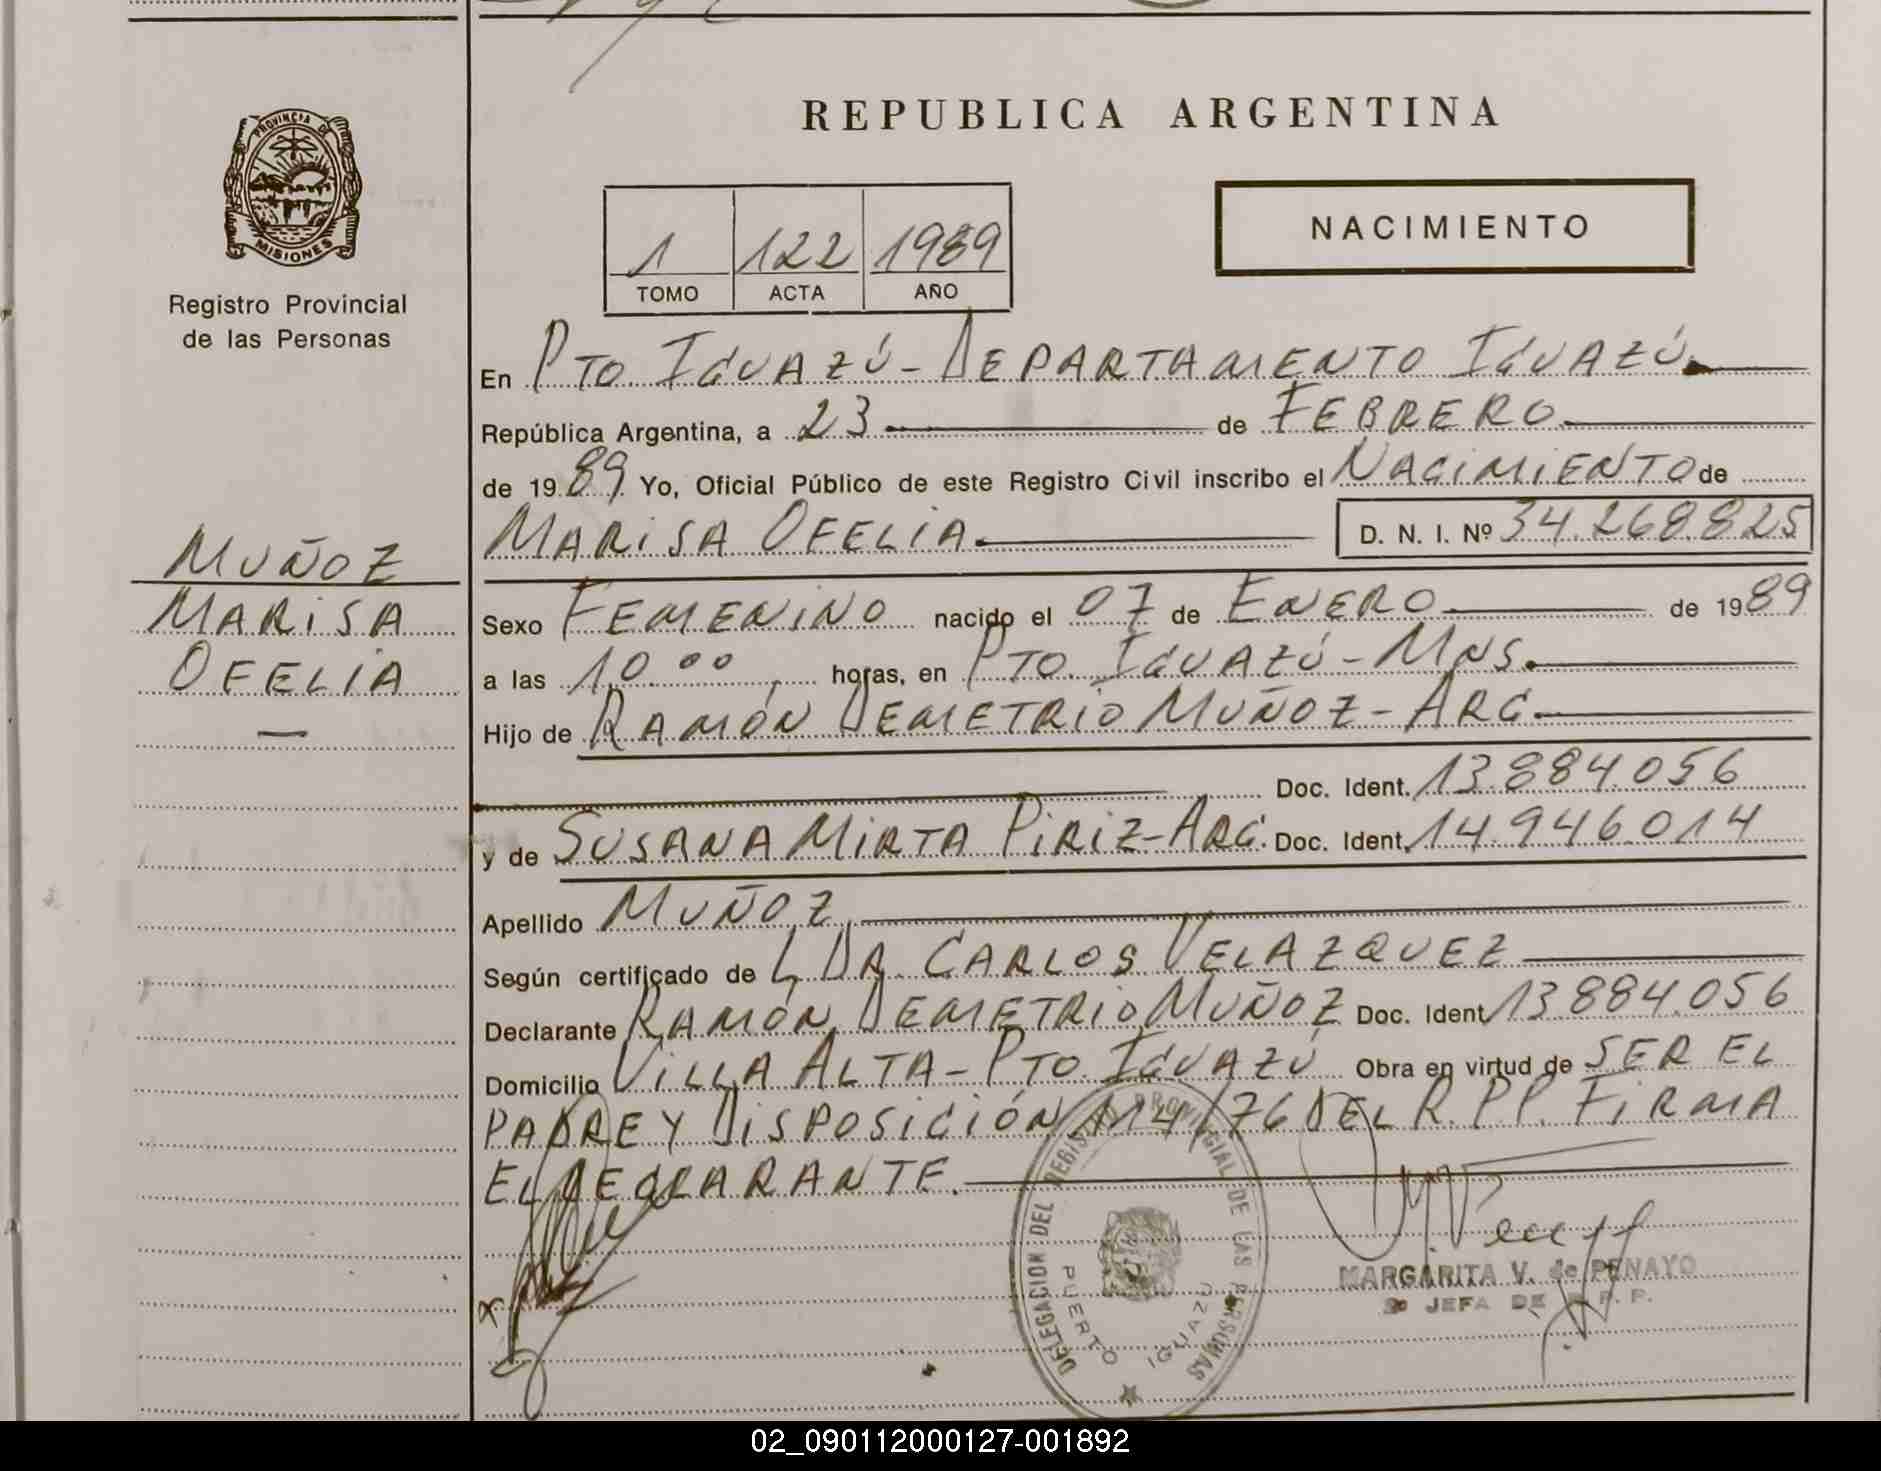 PROVINCIA DE
MISIONES
Registro Provincial
de las Personas
MUÑOZ
MARISA
OFELIA
—
REPUBLICA ARGENTINA
1 122 1989
TOMO ACTA AÑO
NACIMIENTO
En PTO IGUAZÚ - DEPARTAMENTO IGUAZÚ
República Argentina, a 23 de FEBRERO
de 1989 Yo, Oficial Público de este Registro Civil inscribo el NACIMIENTO de
MARISA OFELIA D. N. I. Nº 34.268.825
Sexo FEMENINO nacido el 07 de ENERO de 1989
a las 10 ºº horas, en PTO. IGUAZÚ - MNS.
Hijo de RAMÓN DEMETRIO MUÑOZ - ARG
Doc. Ident. 13.884.056
y de SUSANA MIRTA PIRIZ - ARG. Doc. Ident. 14.946.014
Apellido MUÑOZ
Según certificado de L DR. CARLOS VELAZQUEZ
Declarante RAMÓN DEMETRIO MUÑOZ Doc. Ident 13.884.056
Domicilio VILLA ALTA - PTO. IGUAZÚ Obra en virtud de SER EL
PADRE Y DISPOSICIÓN 114/76 DEL R.P.P. FIRMA
EL DECLARANTE.
DELEGACION DEL REGISTRO PROVINCIAL DE LAS PERSONAS
PUERTO IGUAZU
MARGARITA V. de PENAYO
JEFA DE R. P. P.
02_090112000127-001892